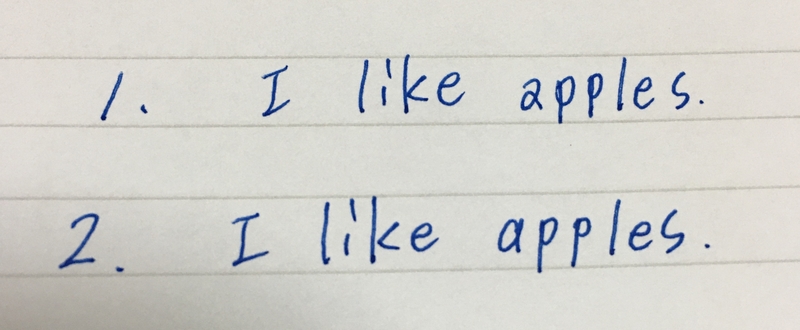 1. I like apples.
2. I like apples.